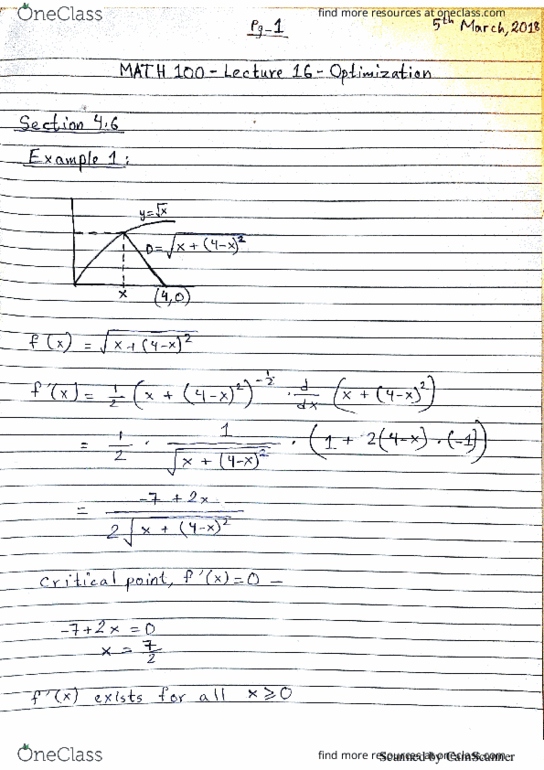 OneClass
find more resources at oneclass.com
Pg-1
5th March, 2018
MATH 100 - Lecture 16 - Optimization
Section 4.6
Example 1:
y=√x
D=√x + (4-x)²
x
(4,0)
f(x) = √x + (4-x)²
f'(x) = 1/2 (x + (4-x)²)^-1/2 · d/dx (x + (4-x)²)
= 1/2 · 1/√x + (4-x)² · (1 + 2(4-x) · (-1))
= -7 + 2x / 2√x + (4-x)²
Critical point, f'(x) = 0 -
-7+2x = 0
x = 7/2
f'(x) exists for all x ≥ 0
OneClass
find more resources at oneclass.com
Scanned by CamScanner